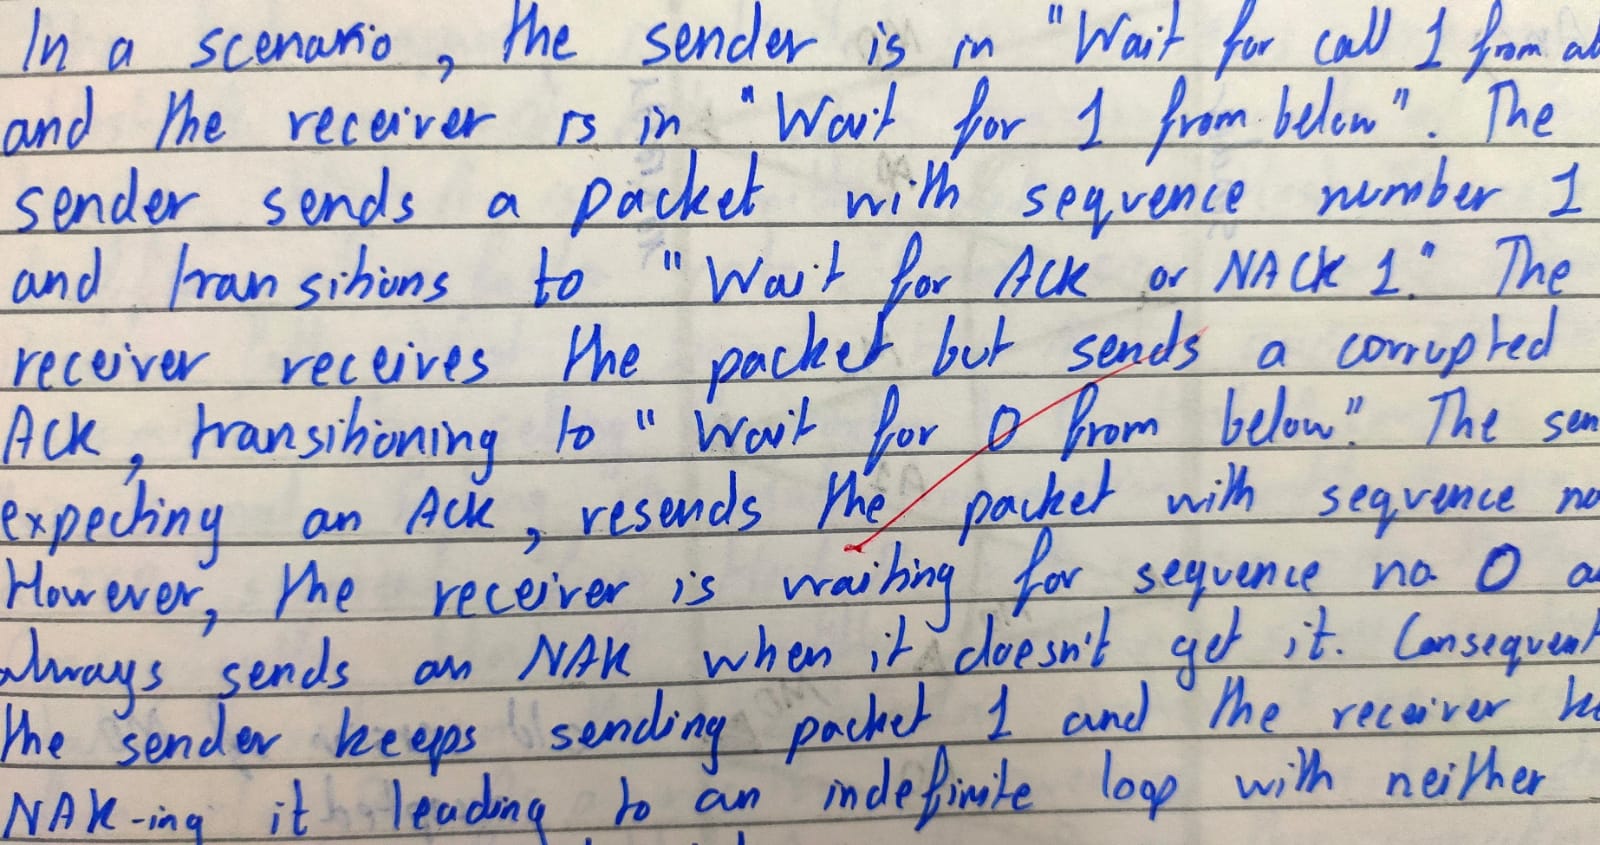 In a scenario, the sender is in "Wait for call 1 from
and the receiver is in "Wait for 1 from below". The
sender sends a packet with sequence number 1
and transitions to "Wait for Ack or NACK 1." The
receiver receives the packet but sends a corrupted
Ack, transitioning to "Wait for 0 from below". The
expecting an Ack, resends the packet with sequence no
However, the receiver is waiting for sequence no. 0
always sends an NAK when it doesn't get it.
the sender keeps sending packet 1 and the receiver
NAK-ing it leading to an indefinite loop with neither